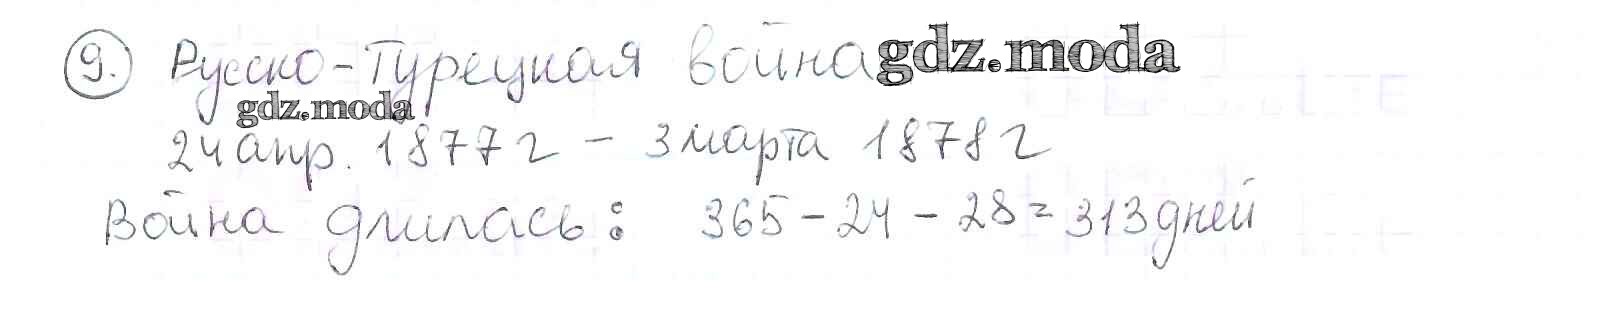 9. Русско-Турецкая война gdz.moda
gdz.moda
24 апр. 1877 г - 3 марта 1878 г
Война длилась: 365 - 24 - 28 = 313 дней